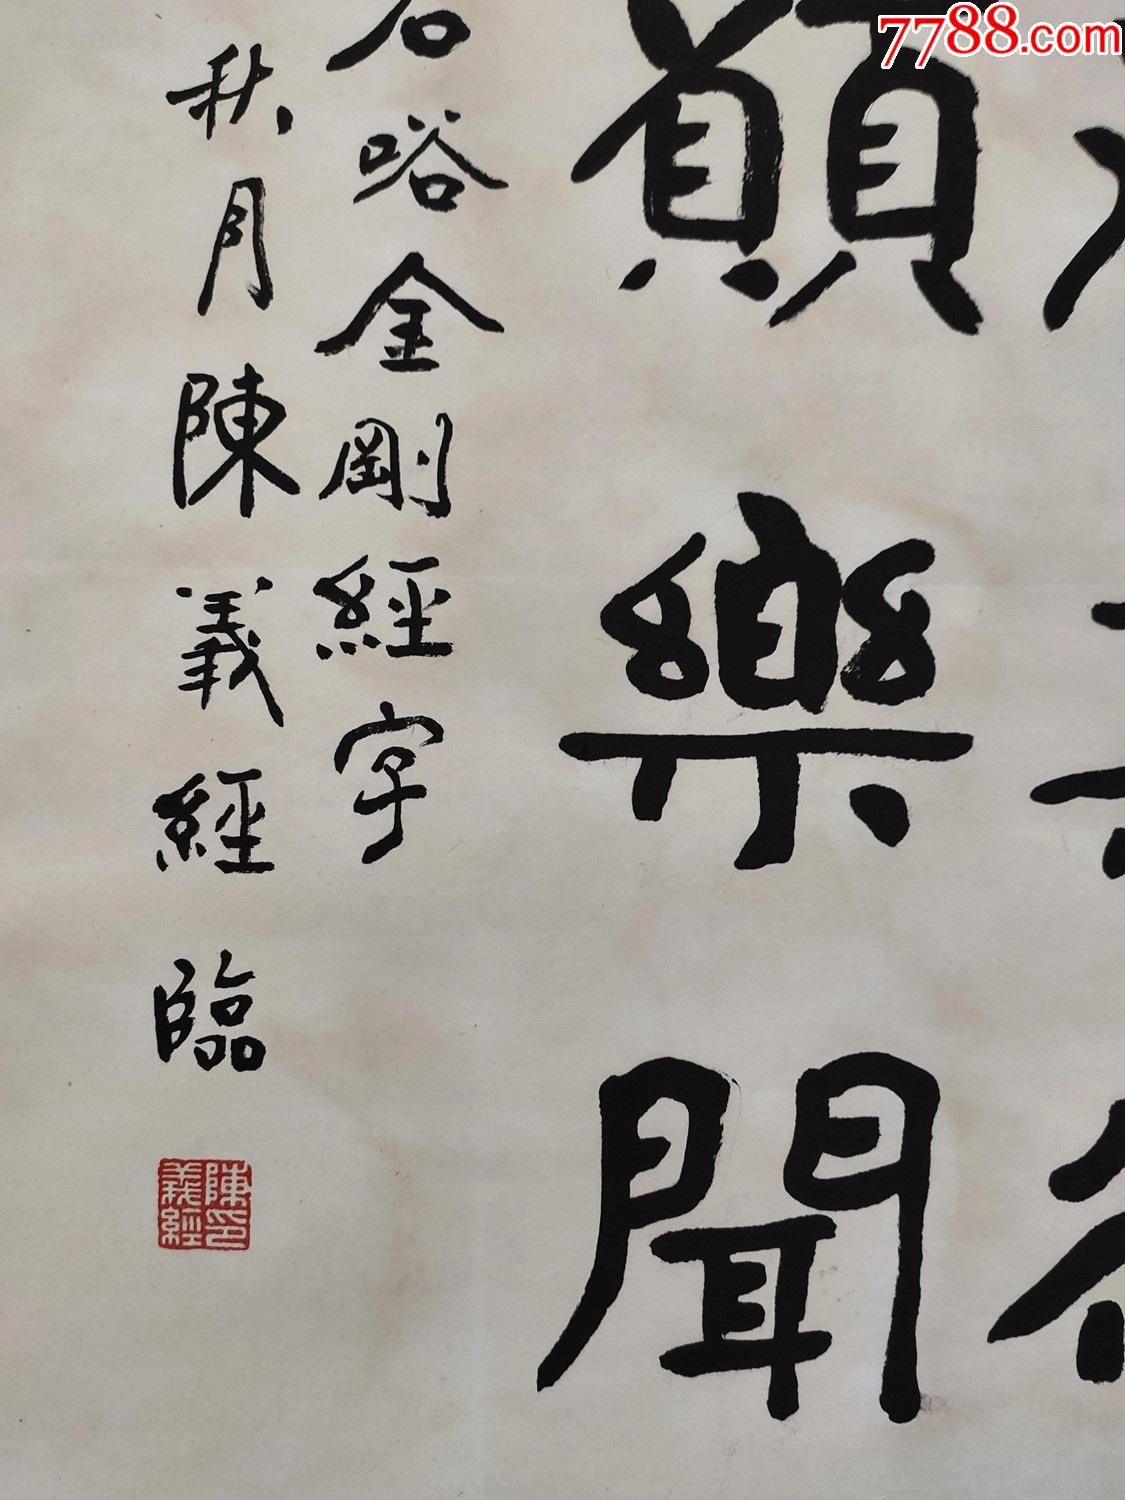 7788.com
願樂聞
石峪金剛經字
秋月陳義經臨
陳印義經